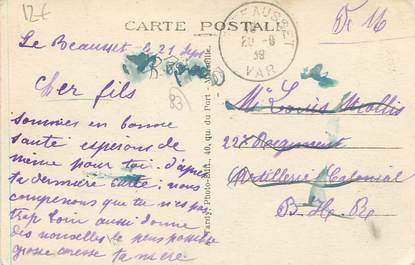 12€
CARTE POSTALE
F. M
BEAUSSET
20-9
39
VAR
Le Beausset le 21 Sept
Cher fils
83
sommes en bonne
santé esperons de
même pour toi. d'après
ta dernière carte; nous
comprenons que tu n'es pas
trop loin aussi donne
des nouvelles le plus possible
grosse caresse ta mère.
Tardy, Photo-Édit., 40, qu. du Port - Marseille
Mr Louis
22e Regiment
Artillerie Coloniale